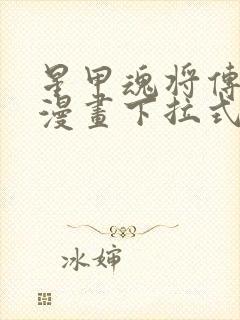 星甲魂将傳
漫畫下拉式
冰婶